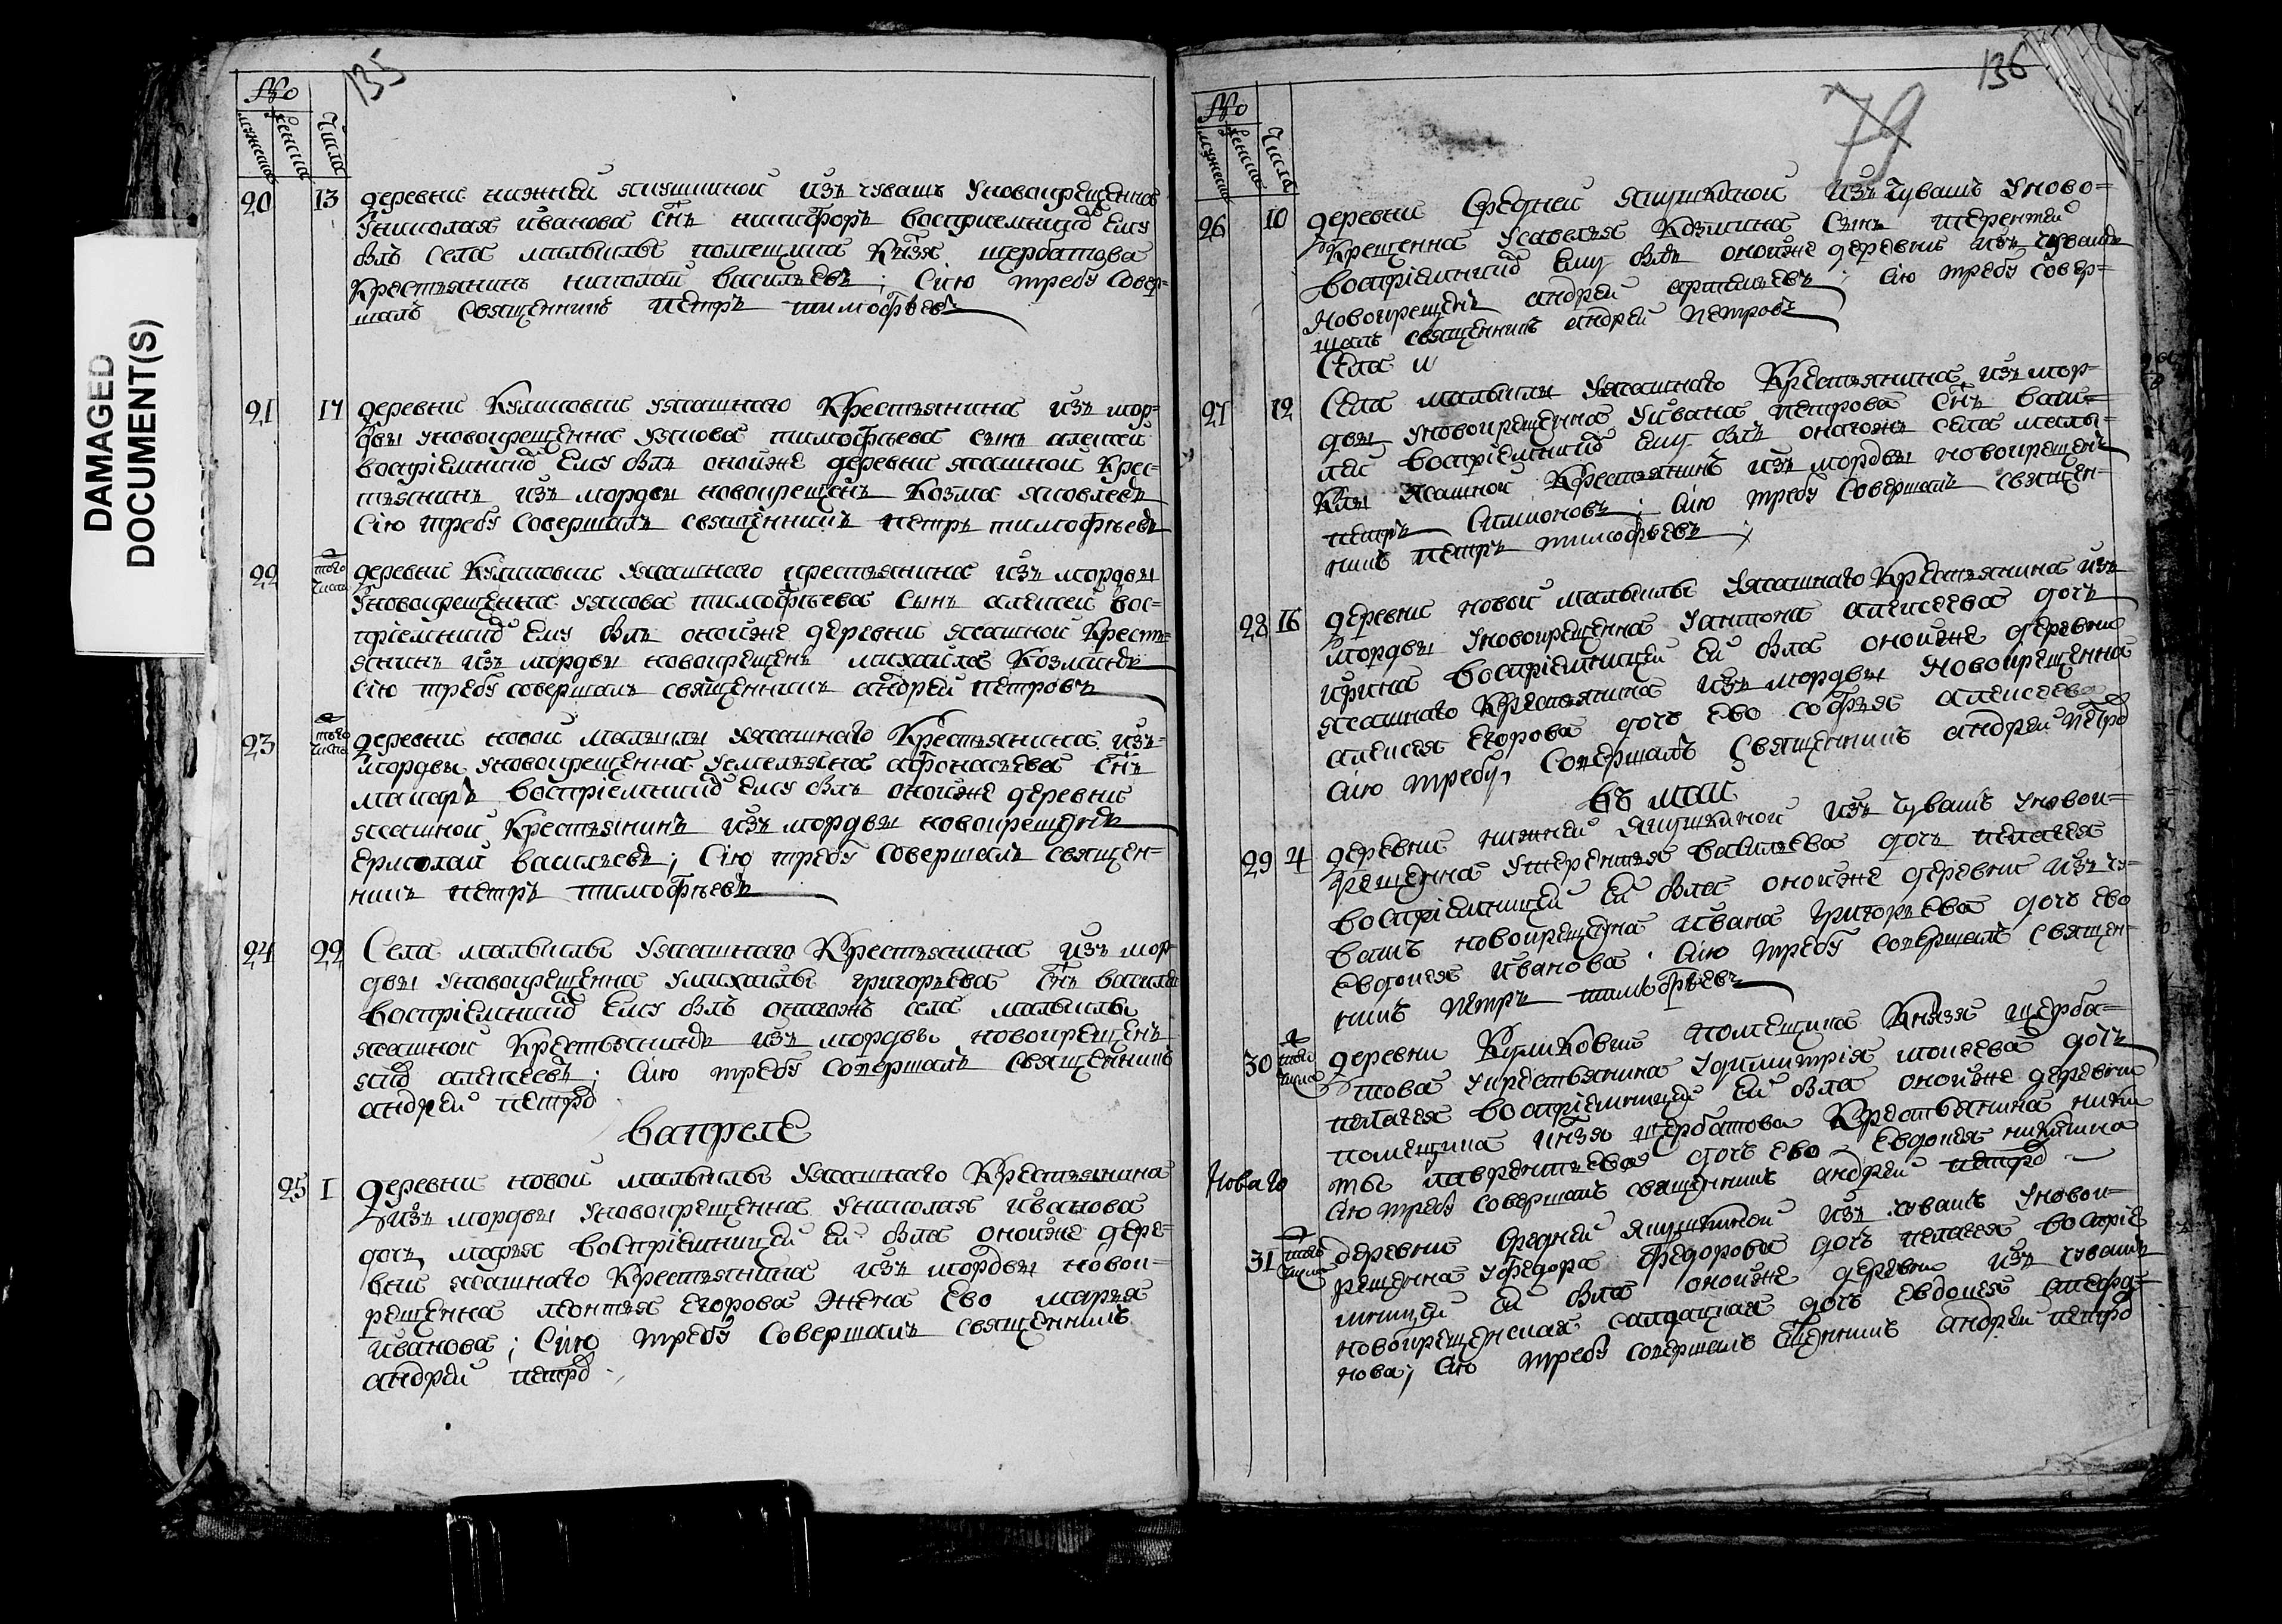 DAMAGED
DOCUMENT(S)
135
№
мужеска
женска
Числа
20 13 деревни нижней якушкиной изъ чувашъ уновокрещенна
Униколая иванова снъ никифоръ восприемникъ Ему
былъ села малыклы помещика Кнзя щербатова
Крестьянинъ николай васильевъ; Сию требу Совер-
шалъ Священникъ петръ тимофѣевъ
21 17 деревни Куликовки уясашнаго Крестьянина изъ мор-
двы уновокрещенна уякова тимофѣева сынъ алексей
воспріемникъ Ему былъ онойже деревни ясашной Крес-
тьянинъ изъ мордвы новокрещенъ Козма яковлевъ
Сію требу Совершалъ священникъ петръ тимофѣевъ
22 того числа деревни Куликовки уясашнаго крестьянина изъ мордвы
уновокрещенна уякова тимофѣева Сынъ алексей вос-
пріемникъ Ему былъ онойже деревни ясашной Кресть-
янинъ изъ мордвы новокрещенъ михайла Козминъ
Сію требу совершалъ священникъ андрей петровъ
23 того числа деревни новой малыклы уясашнаго Крестьянина изъ-
мордвы уновокрещенна Уемельяна афонасьева снъ
макаръ воспріемникъ Ему былъ онойже деревни
ясашной Крестьянинъ изъ мордвы новокрещенъ
Ермолай васильевъ; Сію требу Совершалъ священ-
никъ петръ тимофѣевъ
24 22 Села малыклы Уясашнаго Крестьянина изъ мор-
двы уновокрещенна умихайлы григорьева снъ василей
воспріемникъ Ему былъ оногожъ села малыклы
ясашной Крестьянинъ изъ мордвы новокрещенъ
алексеевъ; Сию требу Совершалъ Священникъ
андрей петро
вапреле
25 1 деревни новой малыклы Уясашнаго Крестьянина
изъ мордвы уновокрещенна униколая иванова
дочь марья воспріемницей Ей была онойже дере-
вни ясашнаго Крестьянина изъ мордвы новок-
рещенна леонтья Егорова Жена Ево марья
иванова; Сию требу Совершалъ Священникъ
андрей петро
136
79
№
мужеска
женска
Числа
26 10 деревни Средней якушкиной изъ чувашъ уново-
Крещенна Усавелья Козмина Сынъ терентей
воспріемникъ Ему былъ онойже деревни изъ чувашъ
Новокрещенъ андрей ; Сию требу совер-
шалъ священникъ андрей петровъ
Села и
27 12 Села малыклы Уясашнаго Крестьянина изъ мор-
двы уновокрещенна уивана петрова снъ васи-
лей воспріемникъ Ему былъ оногожъ села малы-
клы ясашной Крестьянинъ изъ мордвы новокрещенъ
петръ Симионовъ; Сию требу Совершалъ священ-
никъ петръ тимофѣевъ
28 16 деревни новой малыклы Уясашнаго Крестьянина изъ
мордвы уновокрещенна уантона алексеева дочь
ирина воспріемницей Ей была онойже деревни
ясашнаго Крестьянина изъ мордвы новокрещенна
алексея Егорова дочь Ево софья алексеева
Сию требу, Совершалъ Священникъ андрей петро
въ маи
29 4 деревни нижней якушкиной изъ чувашъ уновок-
рещенна утерентья васильева дочь пелагея
воспріемницей Ей была онойже деревни изъ чу-
вашъ новокрещена ивана григорьева дочь ево
Евдокея иванова. Сию требу Совершалъ священ-
никъ петръ тимофѣевъ
30 того числа деревни Куликовки помещика Князя щерба-
това укрестьянина Удимитрія моисеева дочь
пелагея воспріемницей Ей была онойже деревни
помещика кнзя щербатова Крестьянина ники
ты лаврентьева дочь ево Евдокея никитина
Сию требу совершалъ священникъ андрей петро
Новаго
31 того числа деревни Средней якушкиной изъ чувашъ уновок-
рещенна уфедора федорова дочь пелагея воспріе
мницей Ей была онойже деревни изъ чувашъ
новокрещенская салдацкая дочь евдокея
нова; Сию требу Совершалъ Сщенникъ андрей петро